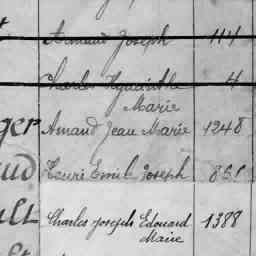 Armand Joseph 114
Charles Hyacinthe 4
Marie
ger Amand Jean Marie 1248
ud Henri Emile Joseph 861
ult Charles Joseph Edouard 1388
Marie